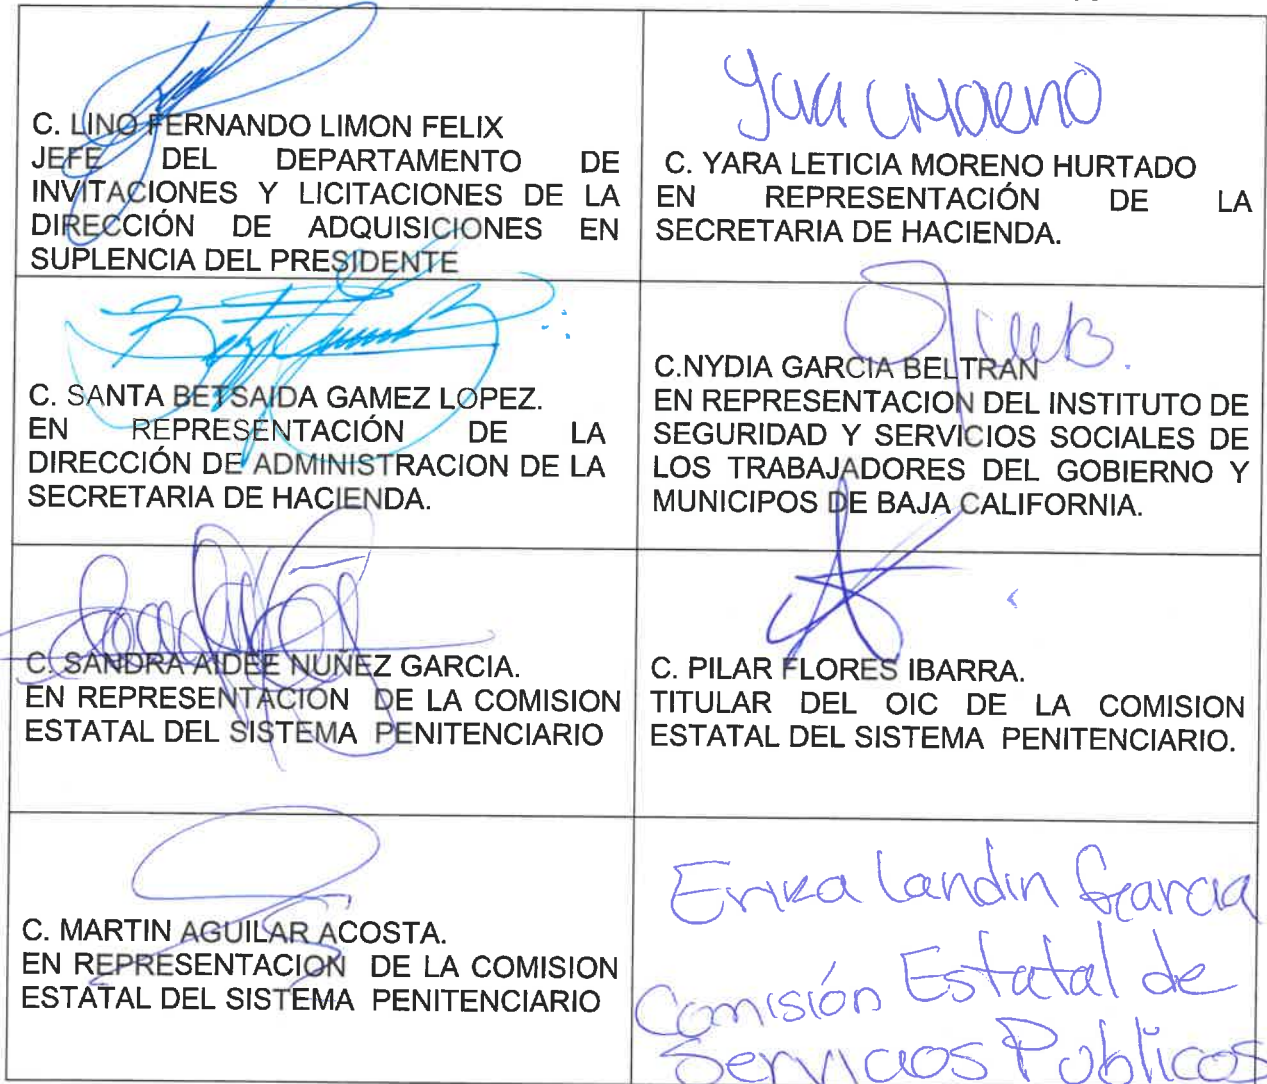 C. LINO FERNANDO LIMON FELIX
JEFE DEL DEPARTAMENTO DE
INVITACIONES Y LICITACIONES DE LA
DIRECCIÓN DE ADQUISICIONES EN
SUPLENCIA DEL PRESIDENTE
Yara Moreno
C. YARA LETICIA MORENO HURTADO
EN REPRESENTACIÓN DE LA
SECRETARIA DE HACIENDA.
C. SANTA BETSAIDA GAMEZ LOPEZ.
EN REPRESENTACIÓN DE LA
DIRECCIÓN DE ADMINISTRACION DE LA
SECRETARIA DE HACIENDA.
C.NYDIA GARCIA BELTRAN
EN REPRESENTACION DEL INSTITUTO DE
SEGURIDAD Y SERVICIOS SOCIALES DE
LOS TRABAJADORES DEL GOBIERNO Y
MUNICIPOS DE BAJA CALIFORNIA.
C. SANDRA AIDEE NUÑEZ GARCIA.
EN REPRESENTACION DE LA COMISION
ESTATAL DEL SISTEMA PENITENCIARIO
C. PILAR FLORES IBARRA.
TITULAR DEL OIC DE LA COMISION
ESTATAL DEL SISTEMA PENITENCIARIO.
C. MARTIN AGUILAR ACOSTA.
EN REPRESENTACION DE LA COMISION
ESTATAL DEL SISTEMA PENITENCIARIO
Erika Landin Garcia
Comisión Estatal de
Servicios Publicos